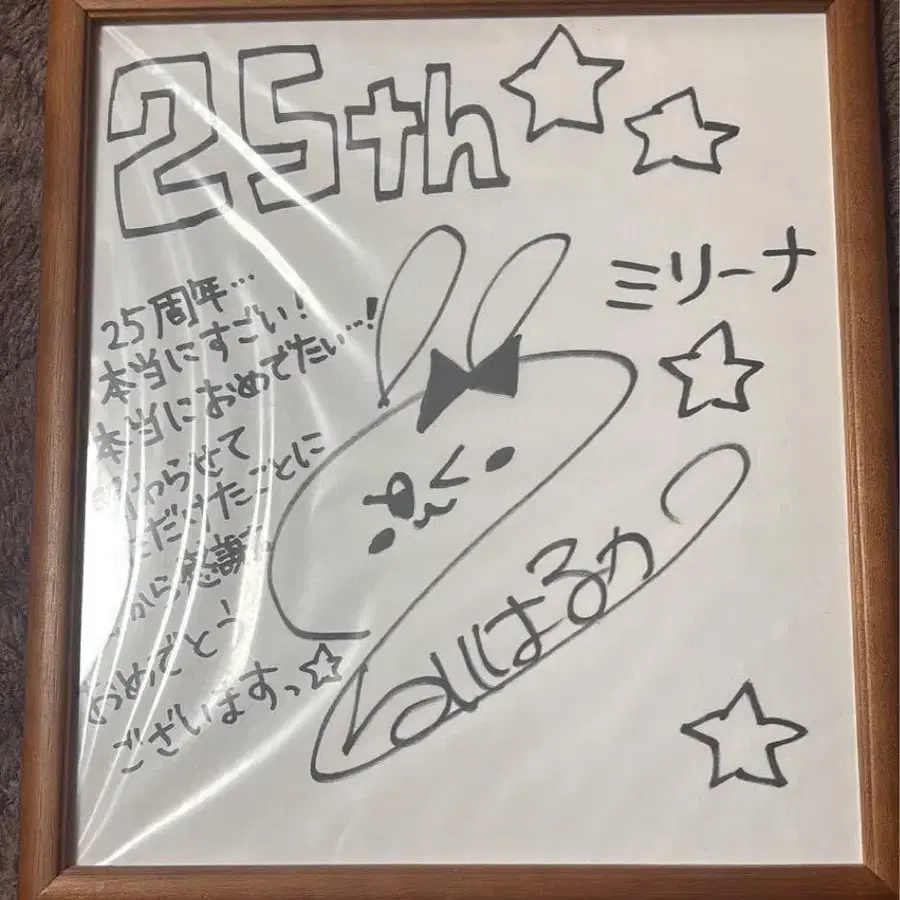 25th
ミリーナ
25周年…
本当にすごい!
本当におめでたい…!
わらせて
ただけたことに
から感謝
おめでとう
ございますっ☆
はるか